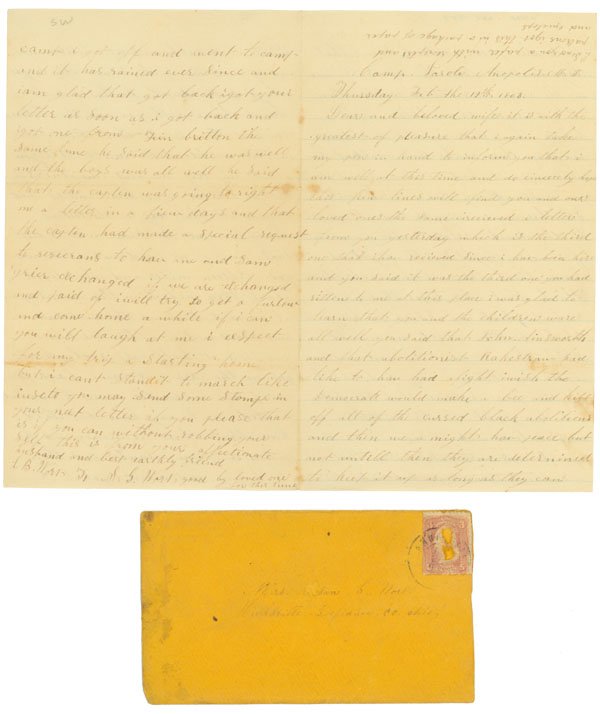 Camp Parole Anopolis M.D.
Thursday Feb the 12th 1863.
Deare and beloved wife it is with the
greatest of pleasure that i again take
my pen in hand to inform you that i
am well at this time and do sincerely hope
this few lines will find you and our
loved ones the same i recieved a letter
from you yesterday which is the third
one that i have recieved since i have bin here
and you said it was the third one you had
ritten to me at this place i was glad to
learn that you and the children were
all well you said that John
and that abolitionist had
like to have had a fight i wish the
Democrats would make a bee and kill
off all of the cursed black abolitions
and then we mights have peace but
not untill then they are determined
to keep it up as long as they can
camp i got off and went to camp
and it has rained ever since and
i am glad that got back i got your
letter as soon as i got back and
i got one from Tim britton the
same time he said that he was well
and the boys was all well he said
that the capten was going to right
me a letter in a fiew days and that
the capten had made a special request
to rosecrans to have me and Sam
grier exchanged if we are exchanged
and paid of i will try to get a furlow
and come home a while if i can
you will laugh at me i expect
for my trip a starting home
but i cant stand it to march like
you may send some stamps in
your next letter if you please that
is if you can without robbing your
self this is from your affectionate
husband and best earthly friend
To S. C. Wort good by loved one
for this time
and
paper with
this in a package of paper
5W
Mrs Susan C Wort
Defiance Co Ohio